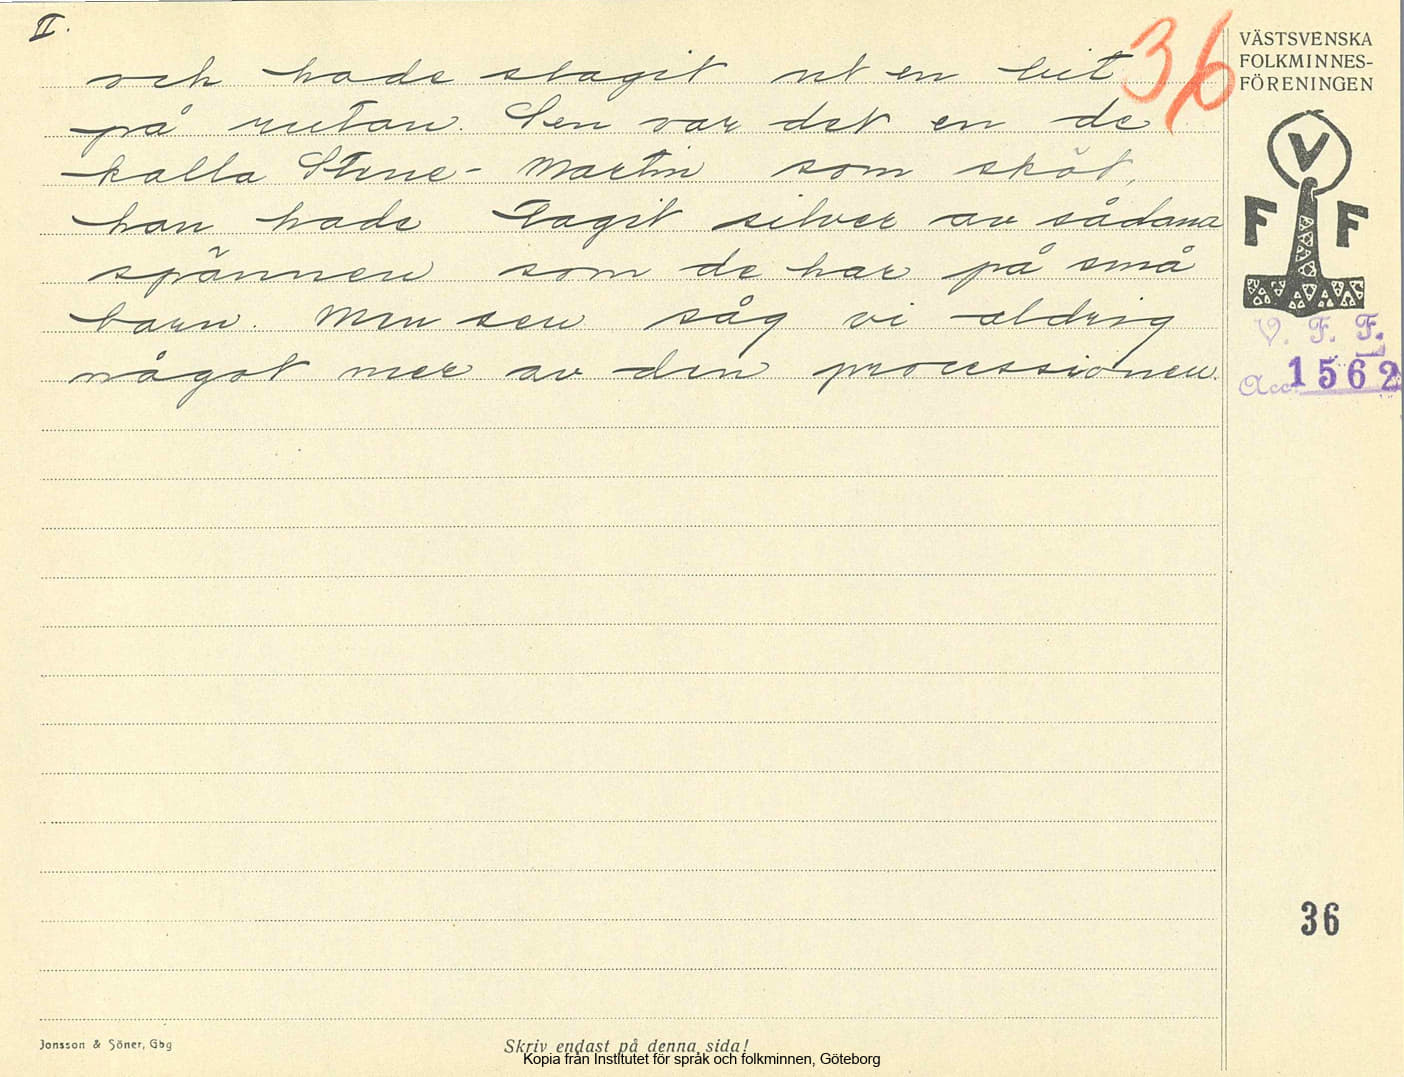 II.
36
och hade slagit ut en bit
på rutan. Sen var det en de
kalla Stine-Martin som sköt,
han hade tagit silver av sådana
spännen som de har på små
barn. Men sen såg vi aldrig
något mer av den processionen.
VÄSTSVENSKA
FOLKMINNES-
FÖRENINGEN
V
F F
V. F. F.
Acc. 1562
36
Jonsson & Söner, Gbg
Skriv endast på denna sida!
Kopia från Institutet för språk och folkminnen, Göteborg